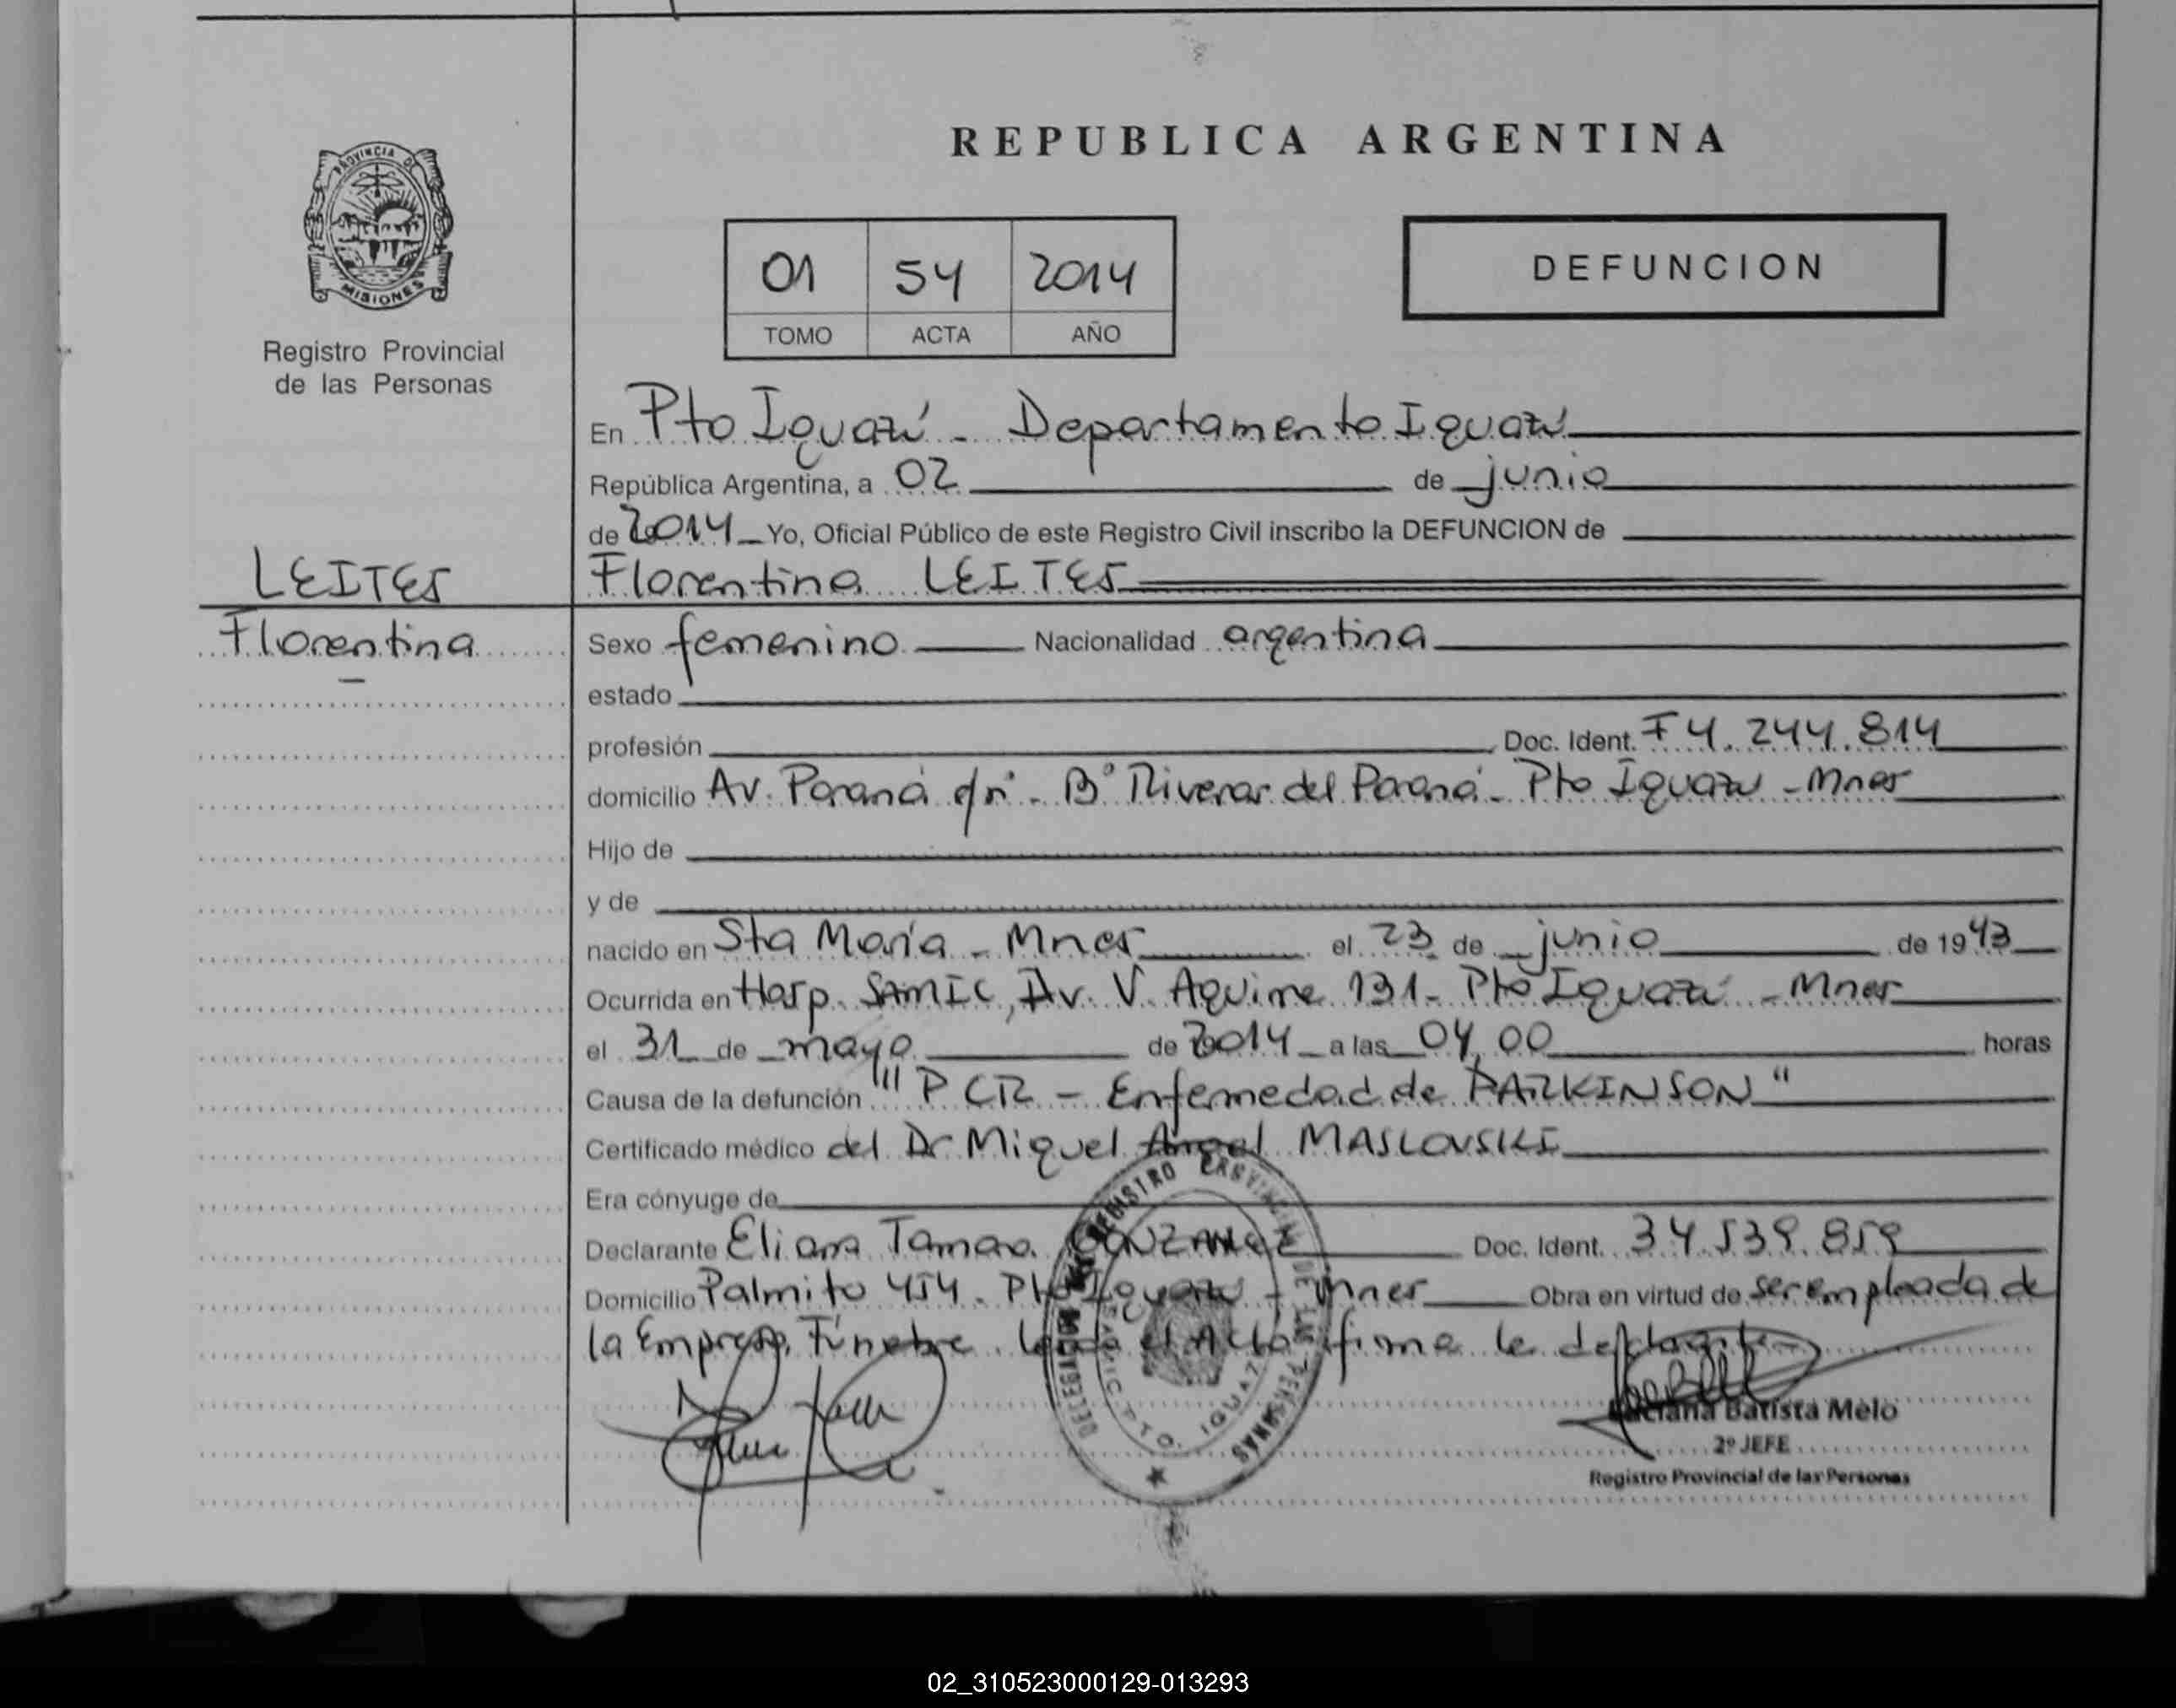 REPUBLICA ARGENTINA
PROVINCIA DE
MISIONES
Registro Provincial
de las Personas
01 54 2014
TOMO ACTA AÑO
DEFUNCION
En Pto Iguazú - Departamento Iguazú
República Argentina, a 02 de junio
de 2014 Yo, Oficial Público de este Registro Civil inscribo la DEFUNCION de
LEITES
Florentina
Florentina LEITES
Sexo femenino Nacionalidad argentina
estado
profesión Doc. Ident. F 4.244.814
domicilio Av. Paraná s/nº - Bº Riveras del Paraná - Pto Iguazu - Mnes
Hijo de
y de
nacido en Sta María - Mnes el 23 de junio de 1943
Ocurrida en Hosp. SAMIC, Av. V. Aguirre 131 - Pto Iguazú - Mnes
el 31 de mayo de 2014 a las 04,00 horas
Causa de la defunción "PCR - Enfermedad de PARKINSON"
Certificado médico del Dr Miguel Angel MASLOVSKI
Era cónyuge de
Declarante Eliana Tamara GONZALEZ Doc. Ident. 34.539.859
Domicilio Palmito 454 - Pto Iguazu - Mnes Obra en virtud de ser empleada de
la Empresa Fúnebre. Leida el Acta firma la declarante
REGISTRO PROVINCIAL DE LAS PERSONAS
PTO. IGUAZU
Luciana Batista Melo
2º JEFE
Registro Provincial de las Personas
02_310523000129-013293